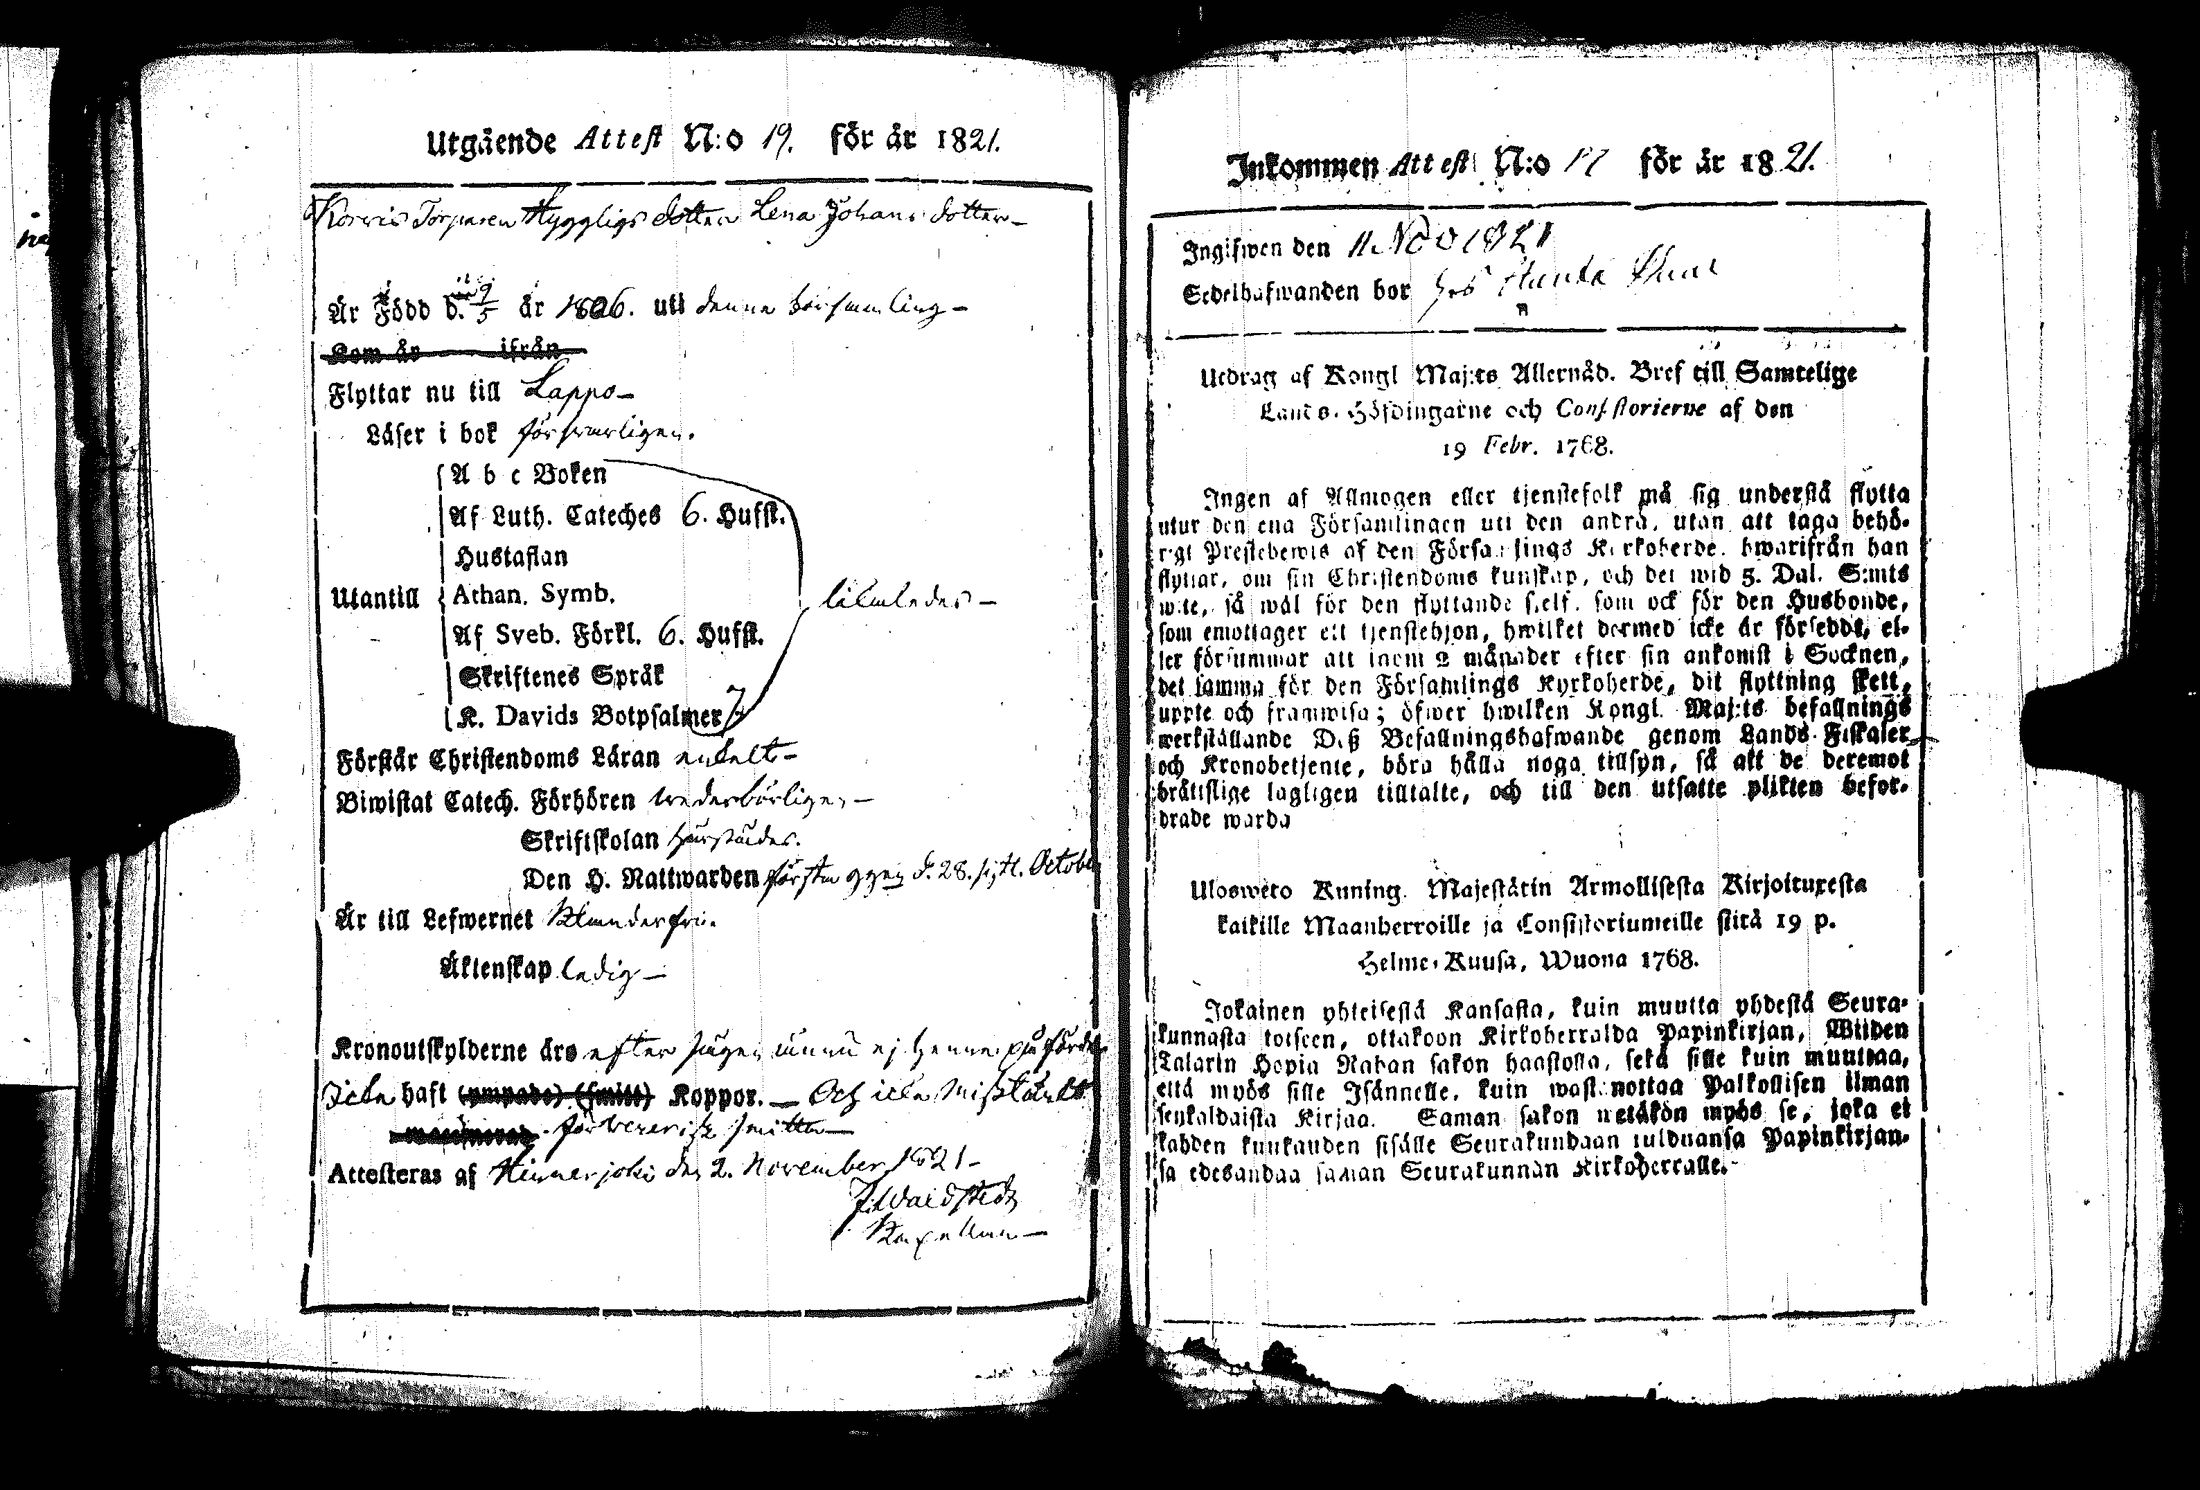 Utgående Attest N:o 19. för år 1821.
Korvis Torparen Hyggligs dotter Lena Johans dotter
Är Född d. 9/5 år 1806. uti denne församling
Kom år ifrån
Flyttar nu till Lappo
Läser i bok försvarligen.
A b c Boken
Af Luth. Cateches 6. Hufst.
Hustaflan
Utantill Athan. Symb. likaledes
Af Sveb. Förkl. 6. Hufst.
Skriftenes Språk
K. Davids Botpsalmer 7
Förstår Christendoms Läran enkelt
Biwistat Catech. Förhören wederbörligen
Skriftskolan härstädes.
Den H. Nattwarden första ggen d. 28. sistl. October
Är till Lefwernet klanderfri.
Äktenskap ledig
Kronoutskylderne äro efter sägen ännu ej henne
Icke haft (ympade) (smitt) Koppor. Och icke misstänkt
för venerisk smitta
Attesteras af Hinnerjoki den 2. November 1821
Kapellan
Inkommen Attest N:o 17 för år 1821.
Ingifwen den 11 Nov 1821
Sedelhafwanden bor hos
Utdrag af Kongl Maj:ts Allernåd. Bref till Samtelige
Lands-Höfdingarne och Consistorierne af den
19 Febr. 1768.
Ingen af Allmogen eller tjenstefolk må sig understå flytta
utur den ena Församlingen uti den andra, utan att taga behö-
rigt Prestebewis af den Församlings Kyrkoherde, hwarifrån han
flyttar, om sin Christendoms kunskap, och det wid 5. Dal. S:mts
wite, så wäl för den flyttande sjelf, som ock för den Husbonde,
som emottager ett tjenstehjon, hwilket dermed icke är försedde, el-
ler försummar att inom 2 månader efter sin ankomst i Socknen,
det samma för den Församlings Kyrkoherde, dit flyttning skett,
uppte och framwisa; öfwer hwilken Kongl. Maj:ts befallnings
werkställande Deß Befallningshafwande genom Lands-Fiskaler
och Kronobetjente, böra hålla noga tillsyn, så att de deremot
brättslige lagligen tilltalte, och till den utsatte plikten befor-
drade warda
Ulosweto Kuning. Majestätin Armollisesta Kirjoituxesta
kaikille Maanherroille ja Consistoriumeille siitä 19 p.
Helme-Kuusa, Wuona 1768.
Jokainen yhteisestä Kansasta, kuin muutta yhdestä Seura-
kunnasta toiseen, ottakoon Kirkoherralda Papinkirjan, Wiiden
Talarin Hopia Rahan sakon haastolla, sekä sille kuin muuttaa,
että myös sille Isännelle, kuin wastanottaa Palkollisen ilman
senkaldaista Kirjaa. Saman sakon wetäkön myös se, joka ei
kahden kuukauden sisälle Seurakundaan tulduansa Papinkirjan-
sa edesandaa saman Seurakunnan Kirkoherralle.